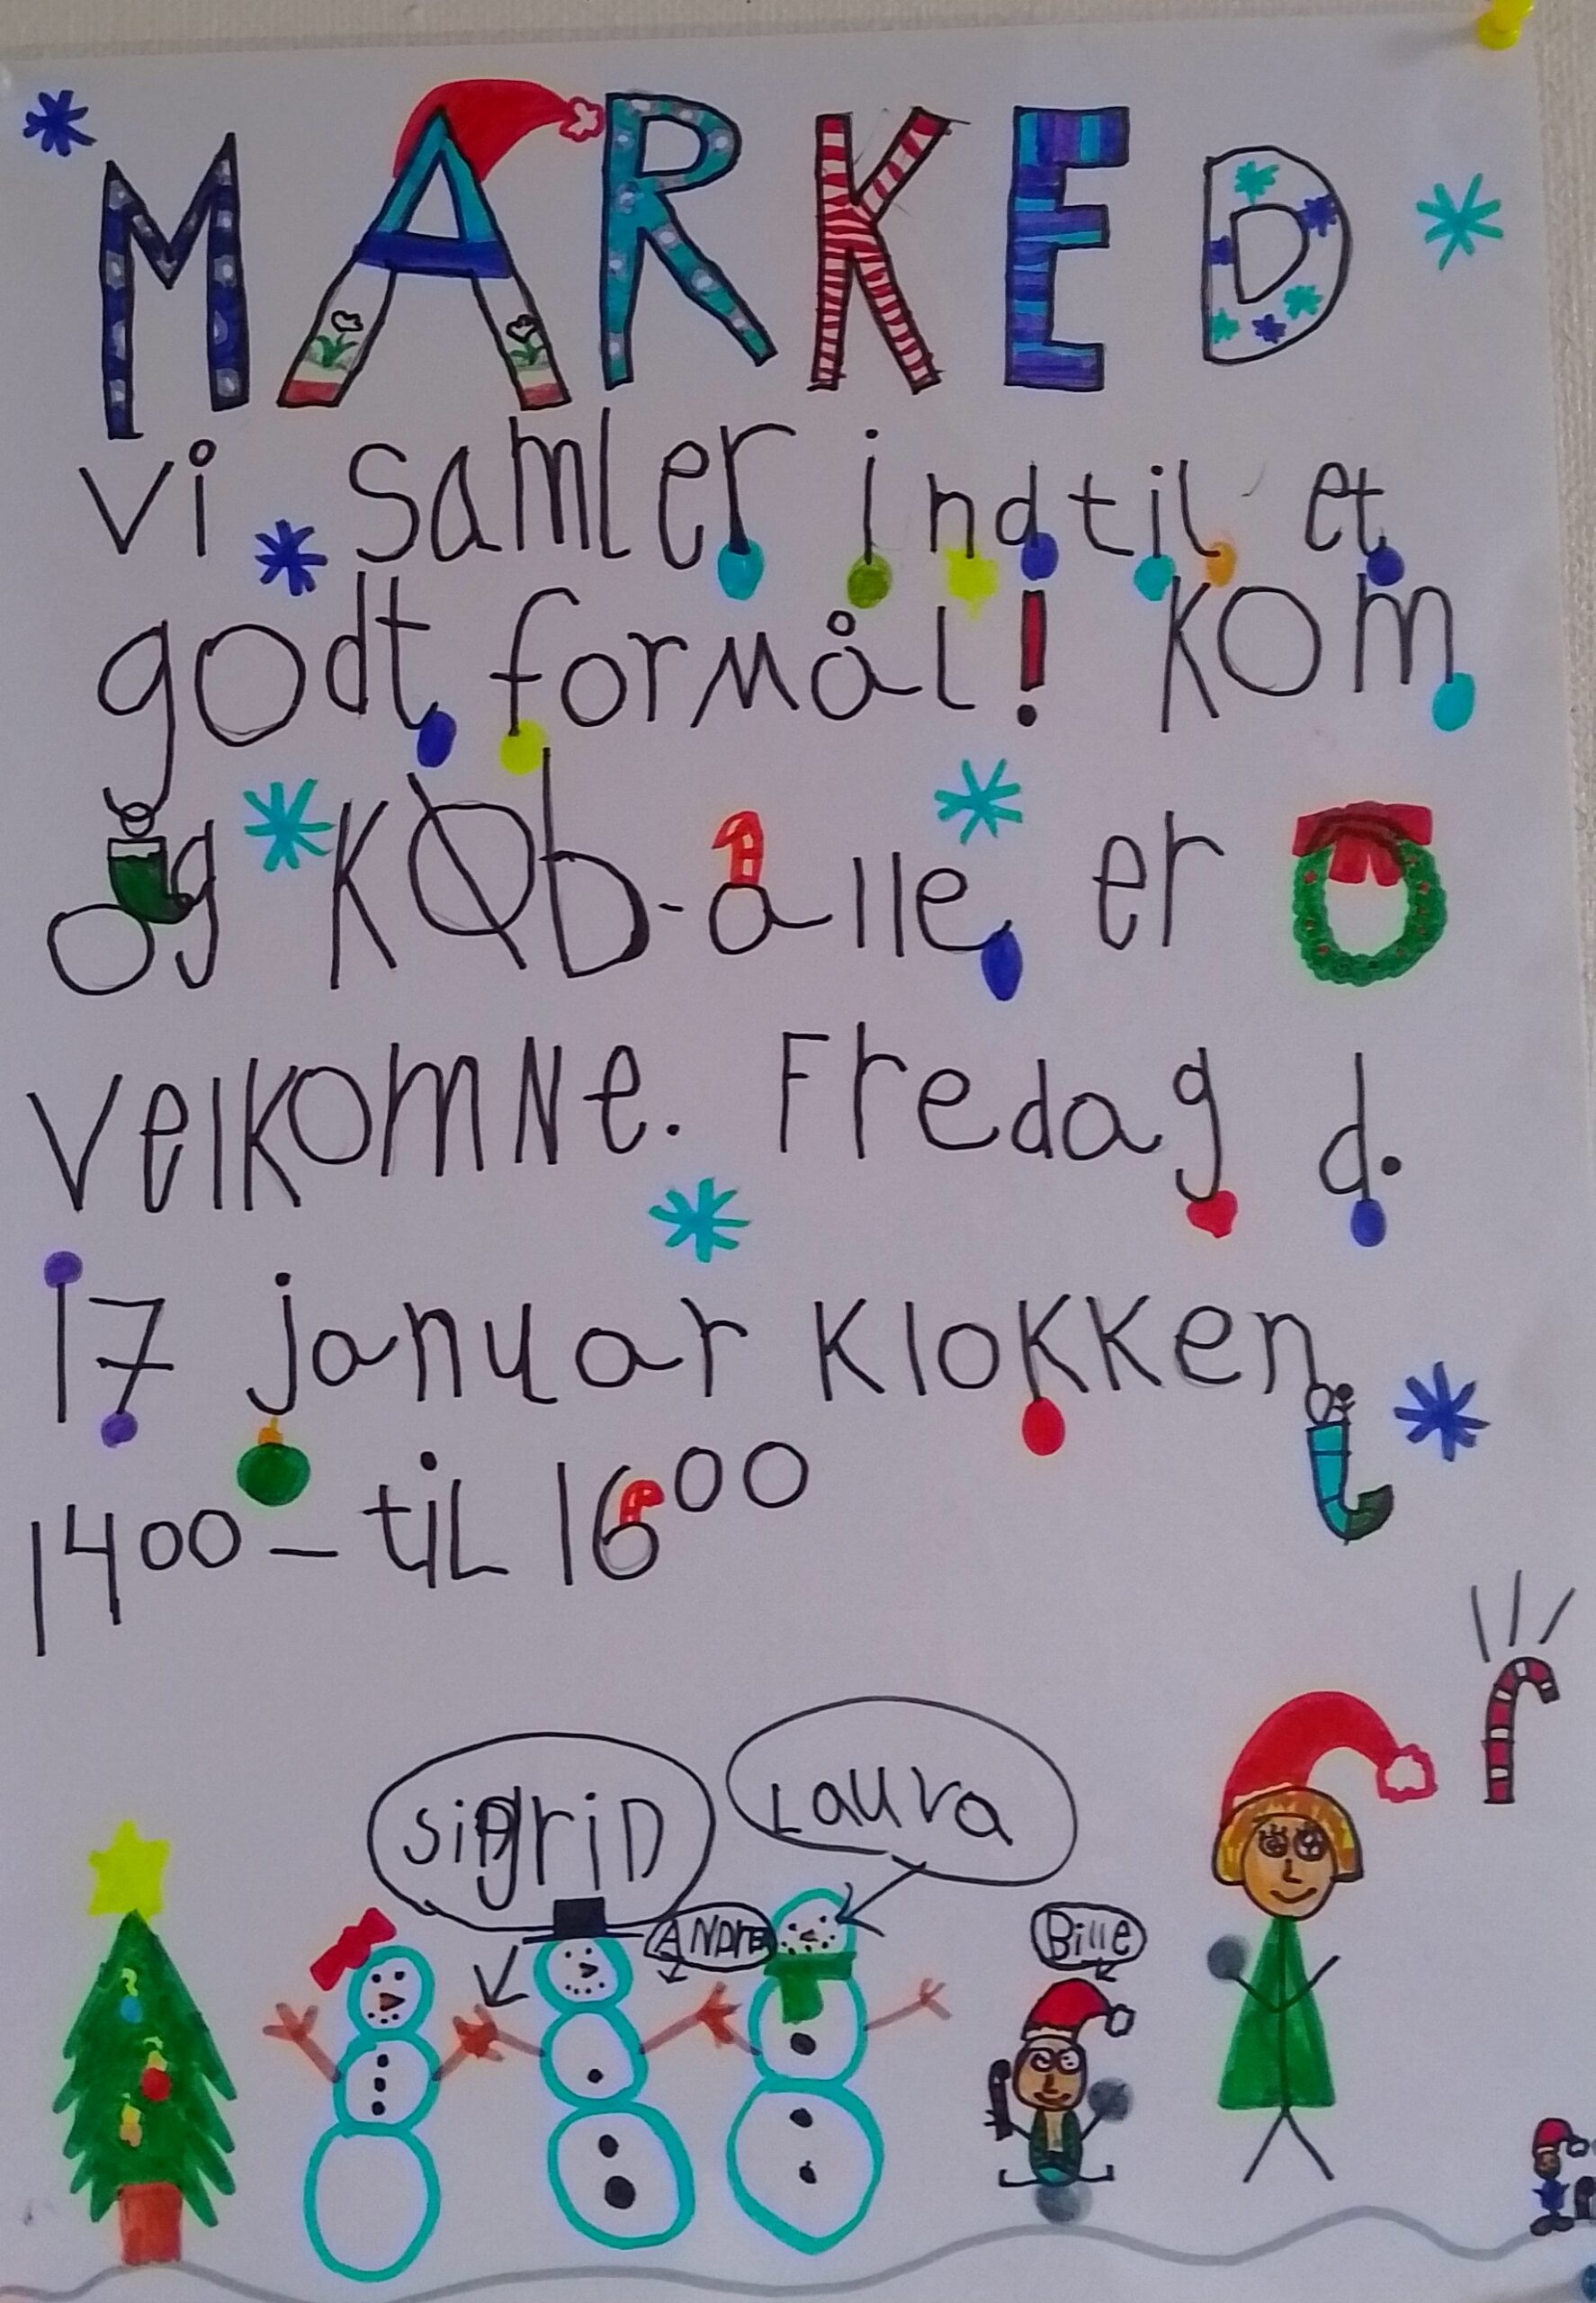 MARKED
Vi samler ind til et
godt formål! Kom
og KØb-alle er
velkomne. Fredag d.
17 januar klokken
14⁰⁰ – til 16⁰⁰
Sigrid Laura
ANDRE Bille